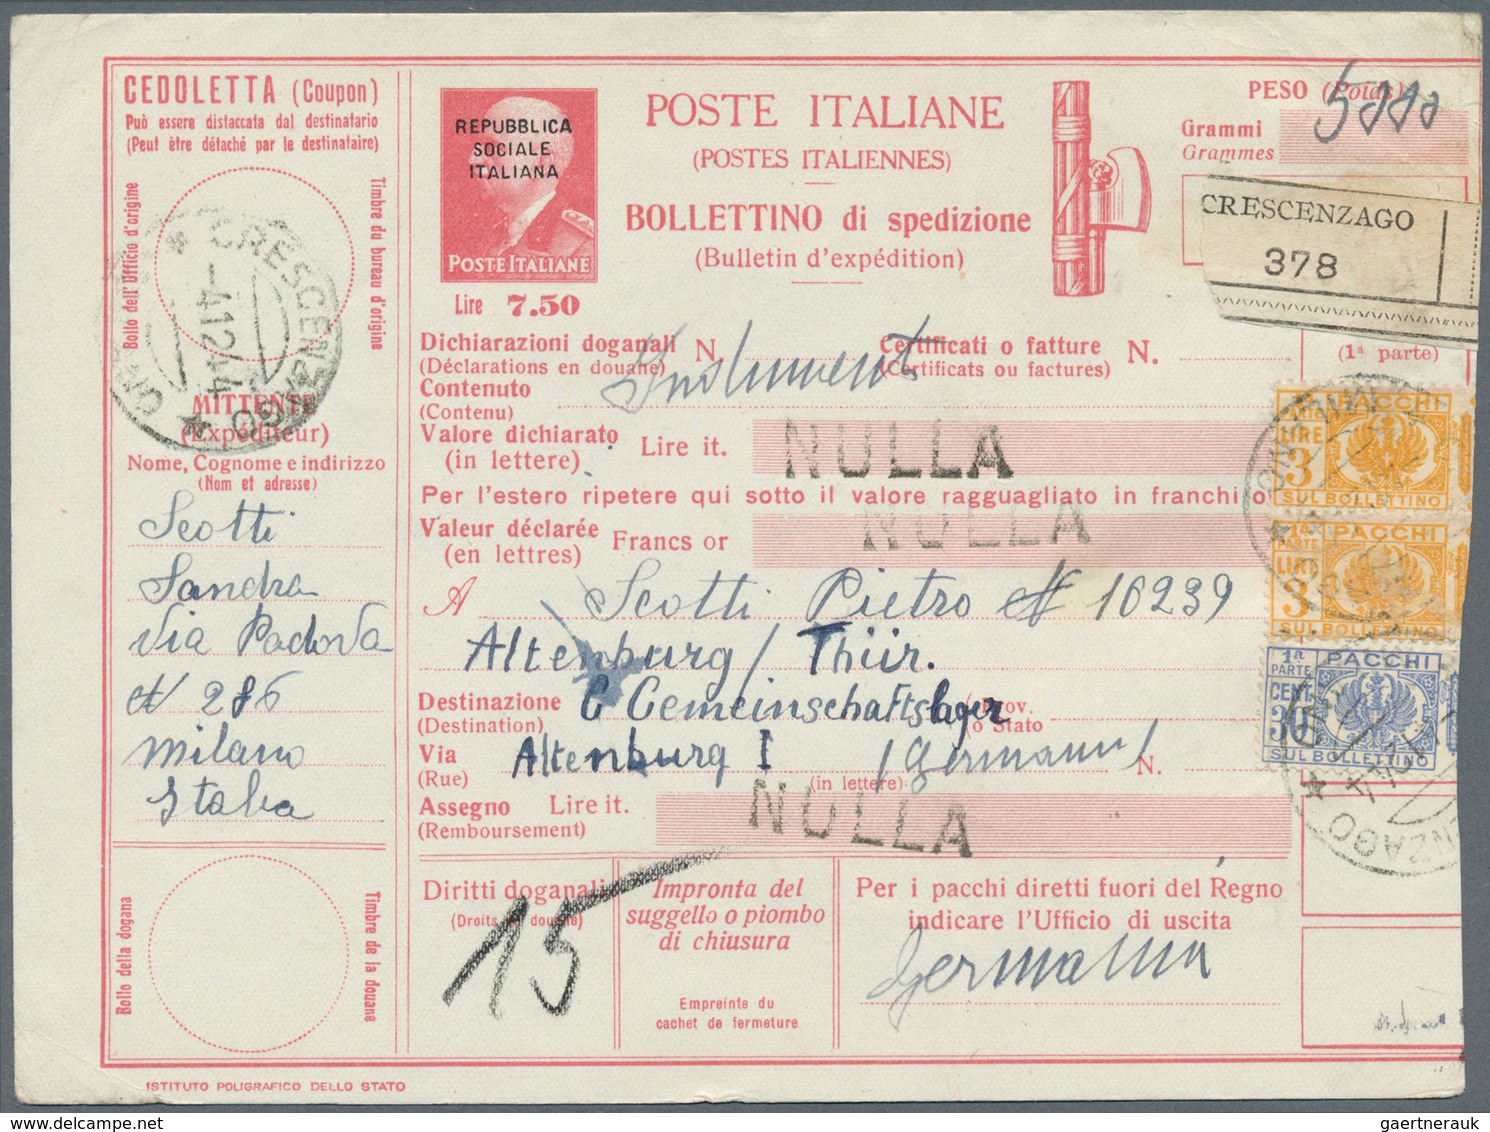 CEDOLETTA (Coupon)
Può essere distaccata dal destinatario
(Peut être détaché par le destinataire)
Bollo dell'Ufficio d'origine
Timbre du bureau d'origine
CRESCENZAGO
MITTENTE
(Expéditeur)
Nome, Cognome e indirizzo
(Nom et adresse)
Scotti
Sandra
Via Padova
N 286
Milano
Italia
Bollo della dogana
Timbre de la douane
ISTITUTO POLIGRAFICO DELLO STATO
REPUBBLICA
SOCIALE
ITALIANA
POSTE ITALIANE
Lire 7.50
POSTE ITALIANE
(POSTES ITALIENNES)
BOLLETTINO di spedizione
(Bulletin d'expédition)
PESO (Poids)
Grammi
Grammes
CRESCENZAGO
378
(1ª parte)
Dichiarazioni doganali N.
(Déclarations en douane)
Certificati o fatture N.
(Certificats ou factures)
Contenuto
(Contenu)
Valore dichiarato
(in lettere) Lire it. NULLA
Per l'estero ripetere qui sotto il valore ragguagliato in franchi o
Valeur déclarée
(en lettres) Francs or NULLA
A Scotti Pietro N 16239
Altenburg / Thür.
Destinazione
(Destination)
C Gemeinschaftslager
Prov.
o Stato
Via
(Rue)
Altenburg I (Germania) N.
(in lettere)
Assegno Lire it. NULLA
(Remboursement)
1ª PARTE PACCHI
LIRE 3
SUL BOLLETTINO
1ª PARTE PACCHI
LIRE 3
SUL BOLLETTINO
1ª PARTE PACCHI
CENT. 30
SUL BOLLETTINO
Diritti doganali
(Droits de douane)
15
Impronta del
suggello o piombo
di chiusura
Empreinte du
cachet de fermeture
Per i pacchi diretti fuori del Regno
indicare l'Ufficio di uscita
Germania
gaertnerauk